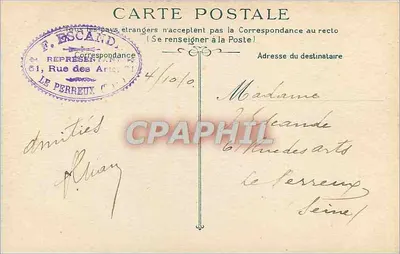 CARTE POSTALE
pays étrangers n'acceptent pas la Correspondance au recto
(Se renseigner à la Poste)
F. ESCAND
REPRÉSENT
61, Rue des Arts
LE PERREUX
Correspondance
Adresse du destinataire
4/10/0
Madame
Escande
61 Rue des arts
Le Perreux
Seine
amitiés
CPAPHIL